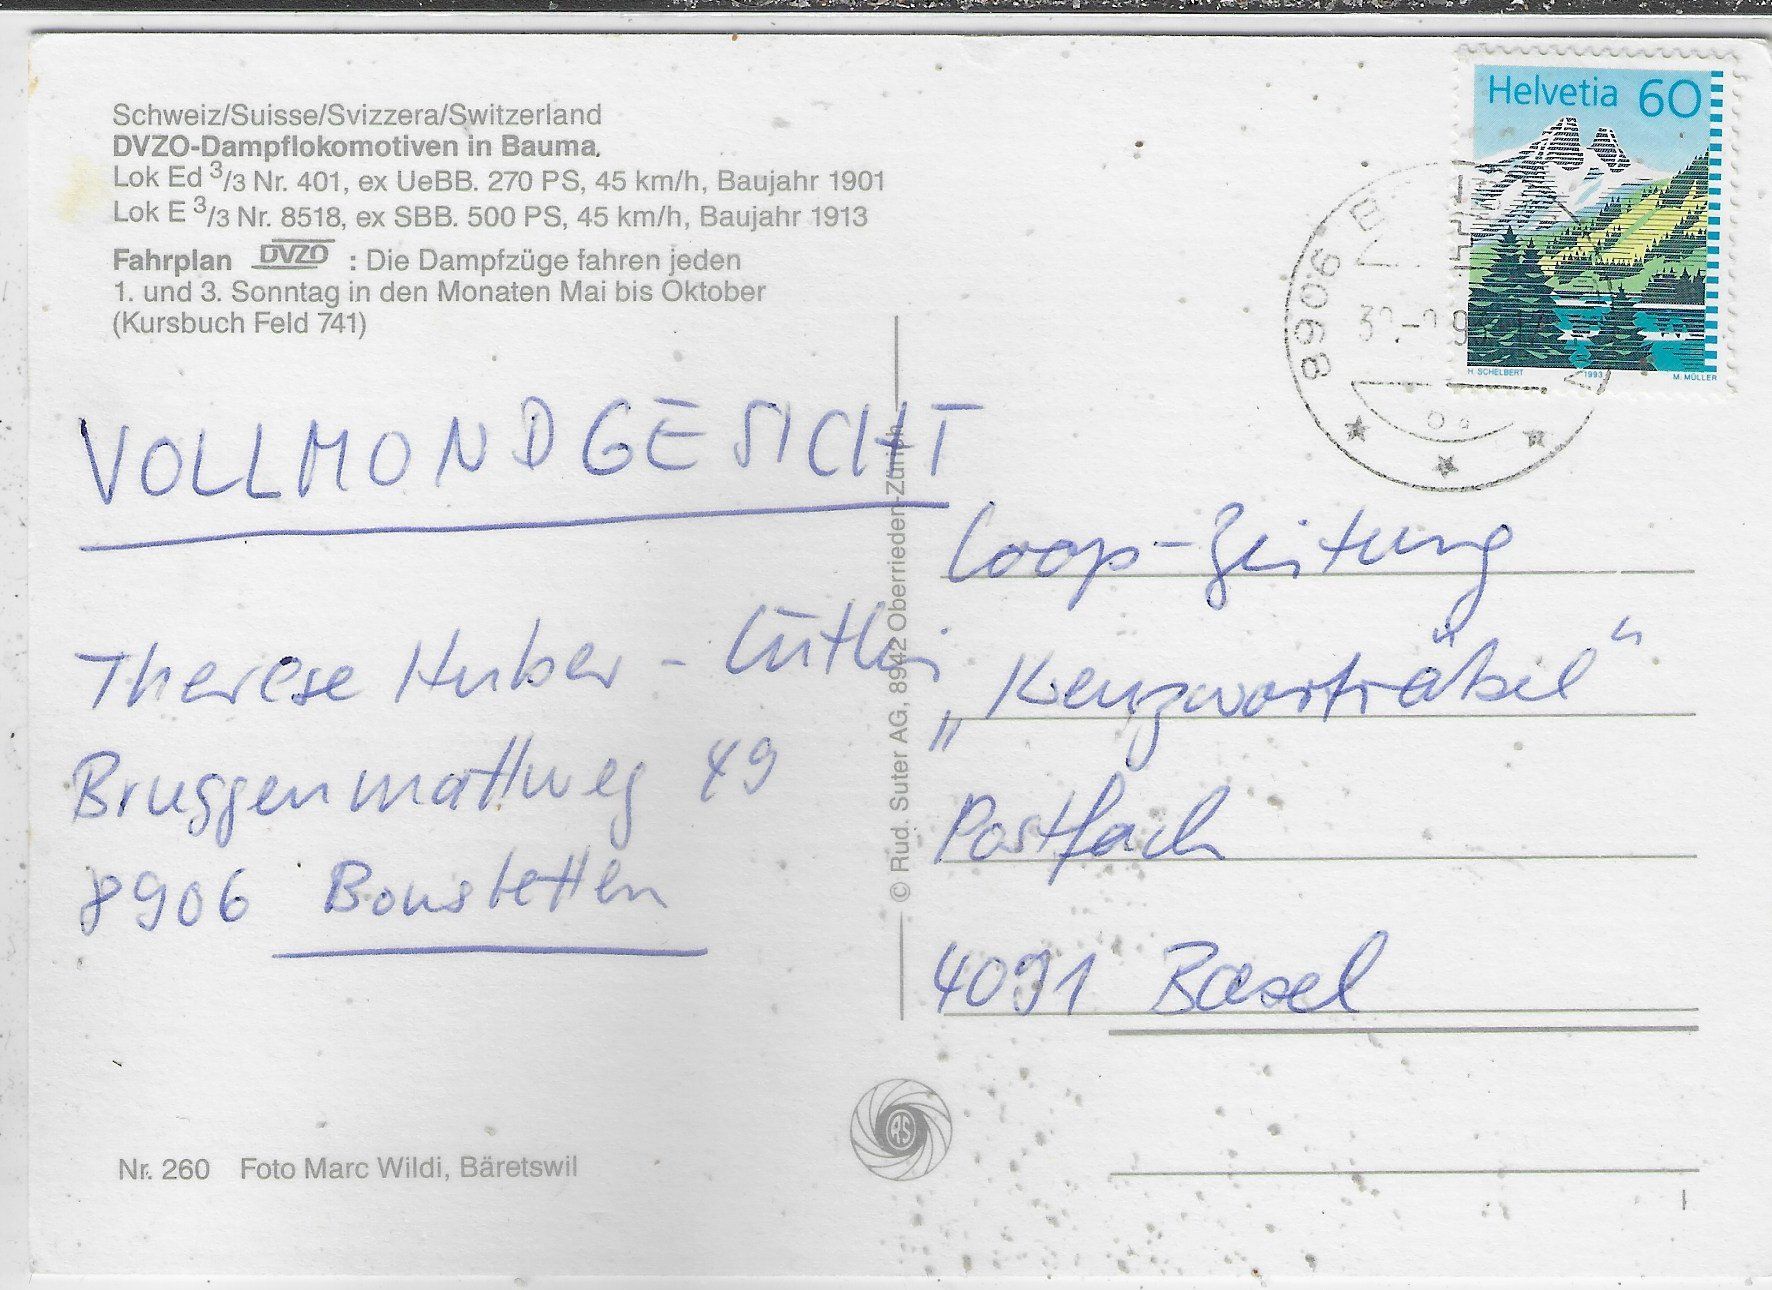 Schweiz/Suisse/Svizzera/Switzerland
DVZO-Dampflokomotiven in Bauma.
Lok Ed 3/3 Nr. 401, ex UeBB. 270 PS, 45 km/h, Baujahr 1901
Lok E 3/3 Nr. 8518, ex SBB. 500 PS, 45 km/h, Baujahr 1913
Fahrplan DVZO : Die Dampfzüge fahren jeden
1. und 3. Sonntag in den Monaten Mai bis Oktober
(Kursbuch Feld 741)
VOLLMONDGESICHT
Therese Huber-Lüthi
Bruggenmattweg 49
8906 Bonstetten
Nr. 260 Foto Marc Wildi, Bäretswil
© Rud. Suter AG, 8942 Oberrieden-Zürich
RS
Helvetia 60
H. SCHELBERT 1993 M. MÜLLER
8906
Coop-Zeitung
„Kreuzworträtsel“
Postfach
4091 Basel